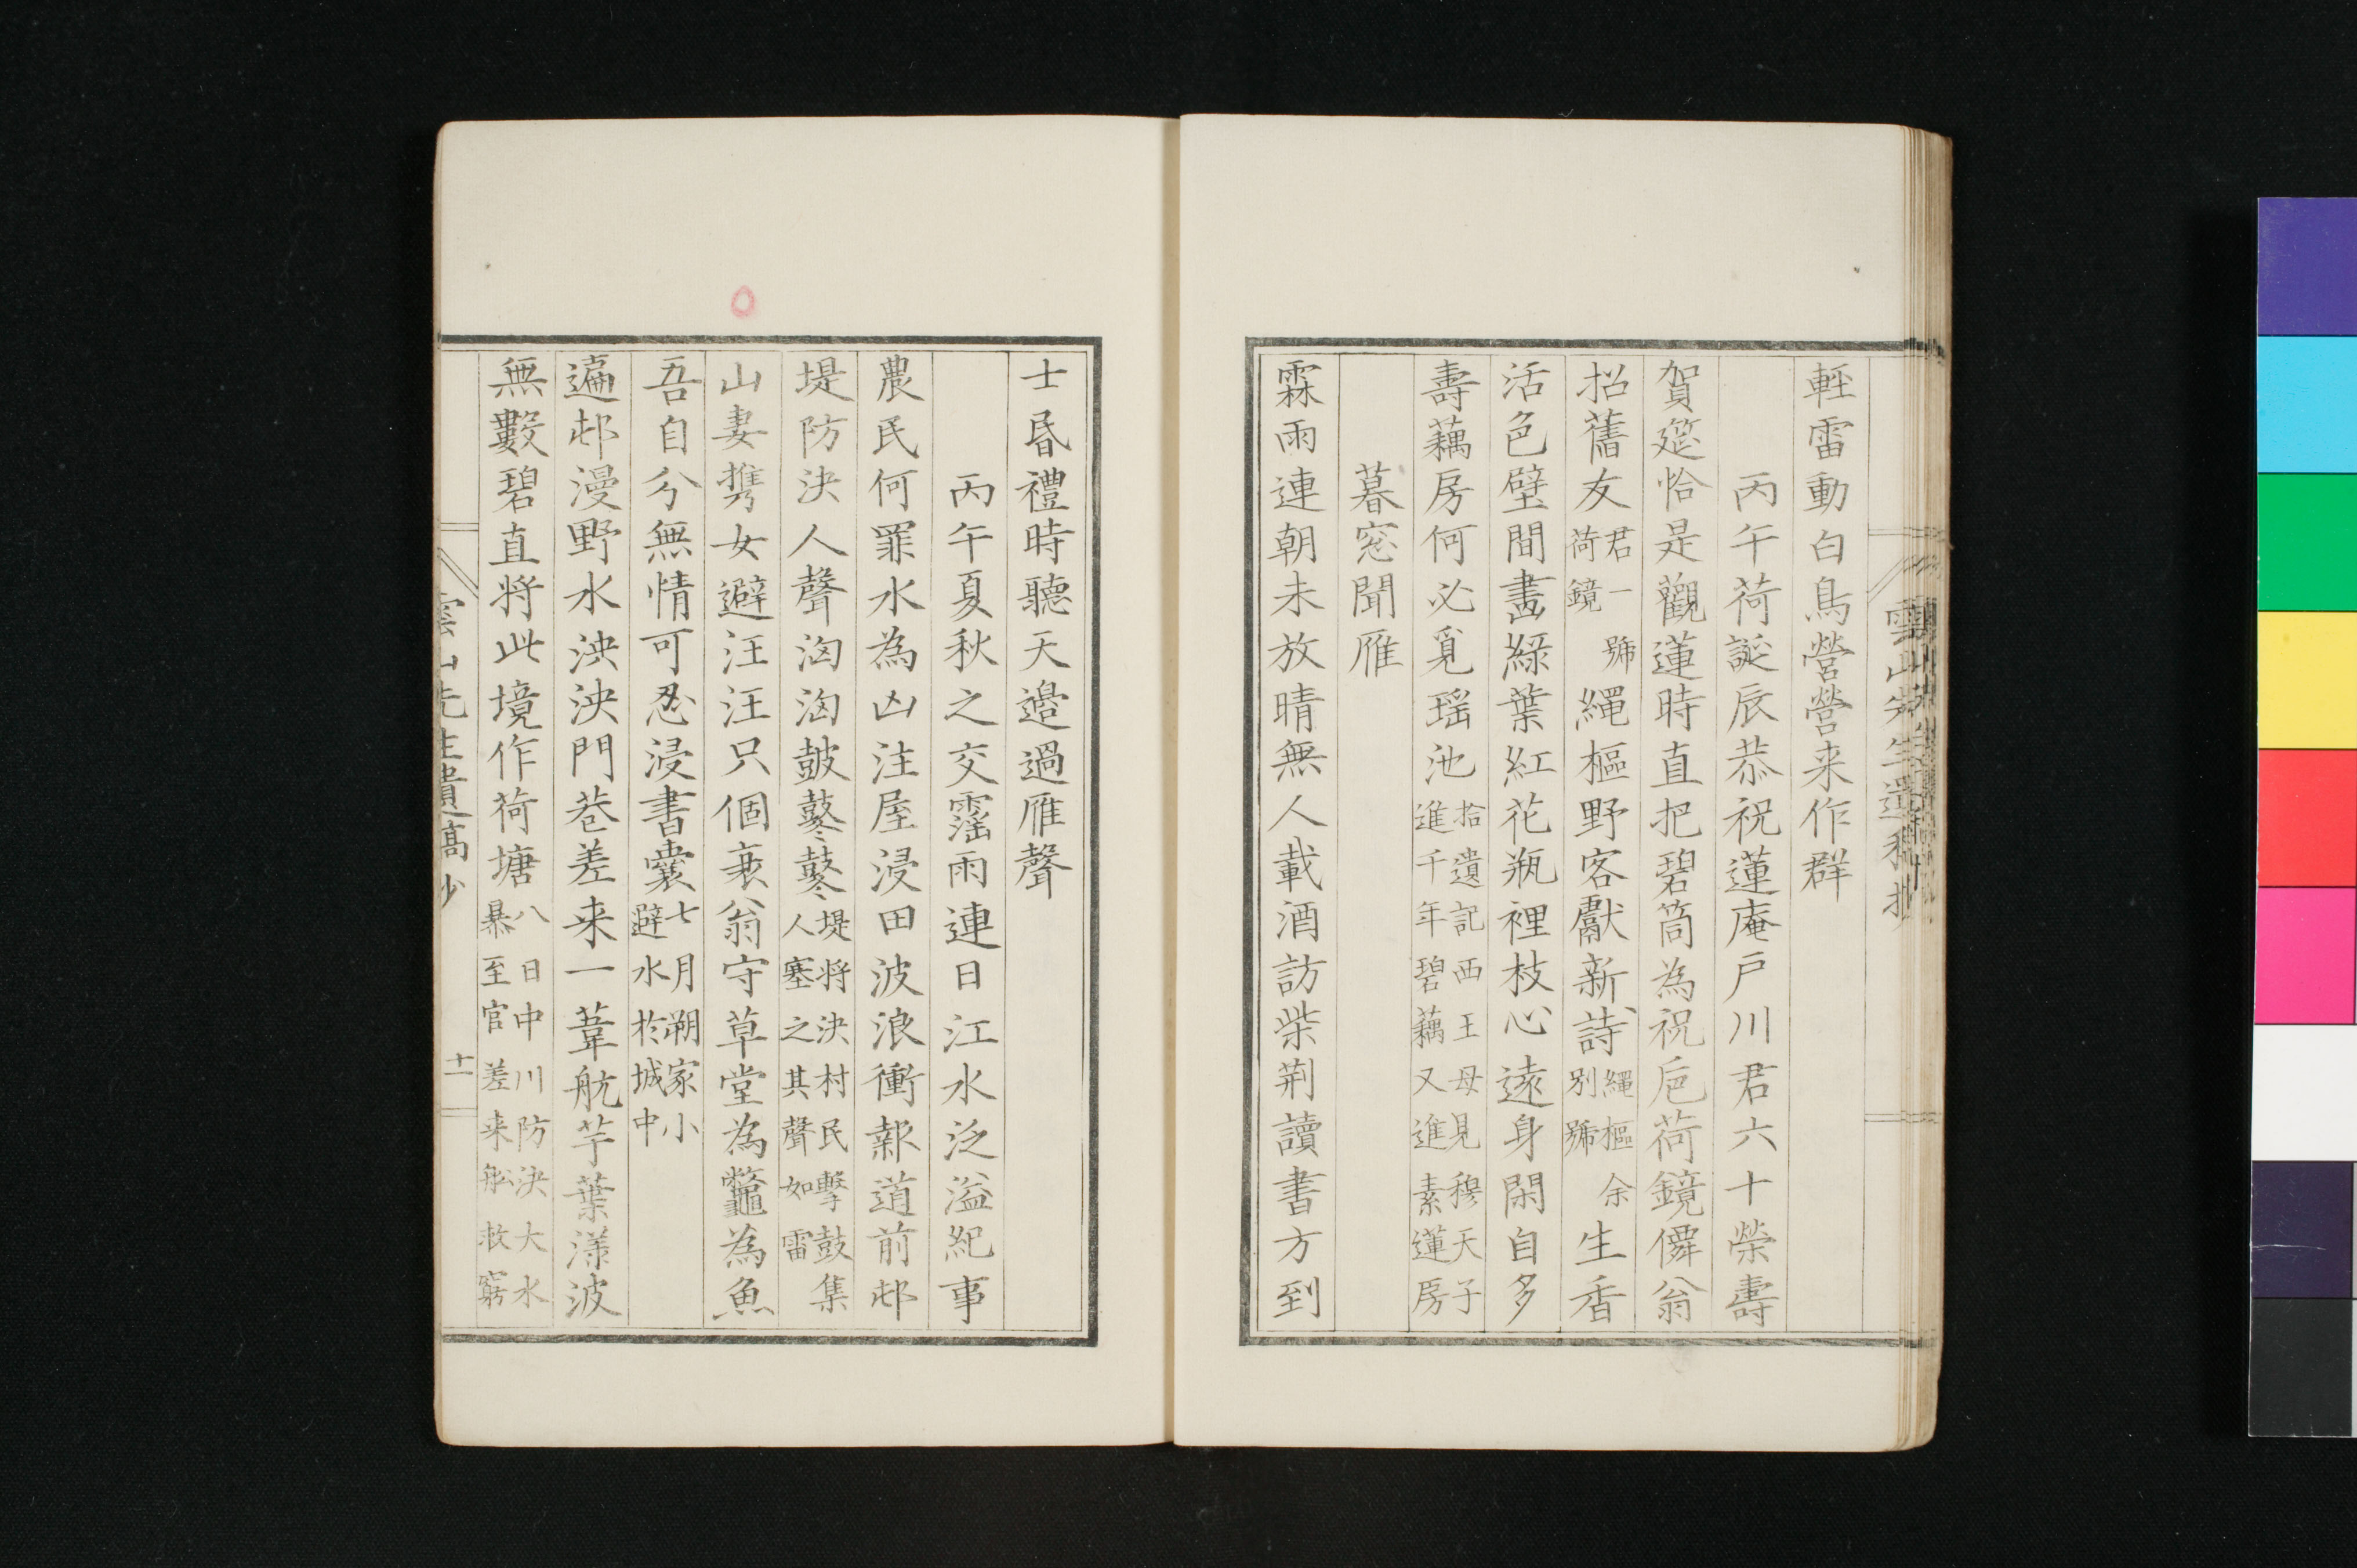 輕雷動白鳥營營来作群
丙午荷誕辰恭祝蓮庵戸川君六十榮壽
賀筵恰是觀蓮時直把碧筒為祝巵荷鏡僲翁
招舊友君一號荷鏡繩樞野客獻新詩繩樞余別號生香
活色壁間畵綠葉紅花瓶裡枝心遠身閑自多
壽藕房何必覓瑶池拾遺記西王母見穆天子進千年碧藕又進素蓮房
暮窓聞雁
霖雨連朝未放晴無人載酒訪柴荆讀書方到
士昬禮時聽天邉過雁聲
丙午夏秋之交霪雨連日江水泛溢紀事
農民何罪水為凶注屋浸田波浪衝報道前邨
堤防決人聲洶洶皷鼕鼕堤将決村民擊鼓集人塞之其聲如雷
山妻携女避汪汪只個衰翁守草堂為鼈為魚
吾自分無情可忍浸書囊七月朔家小避水於城中
遍邨漫野水泱泱門巷差来一葦航芋葉漾波
無數碧直将此境作荷塘八日中川防決大水暴至官差来船救窮
雲山先生遺稿抄
十一